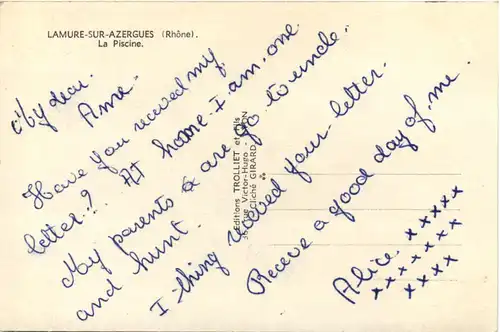 LAMURE-SUR-AZERGUES (Rhône).
La Piscine.
My dear.
Anne.
Have you received my
letter!? At home. I am, one.
My parents & are go to uncle.
and hunt.
I thing received your letter.
Receve a good day of me.
Alice. xxxxx
xxxxxxx
xxxx
Editions TROLLIET et Fils
rue Victor-Hugo - LYON
Cliché GIRARD